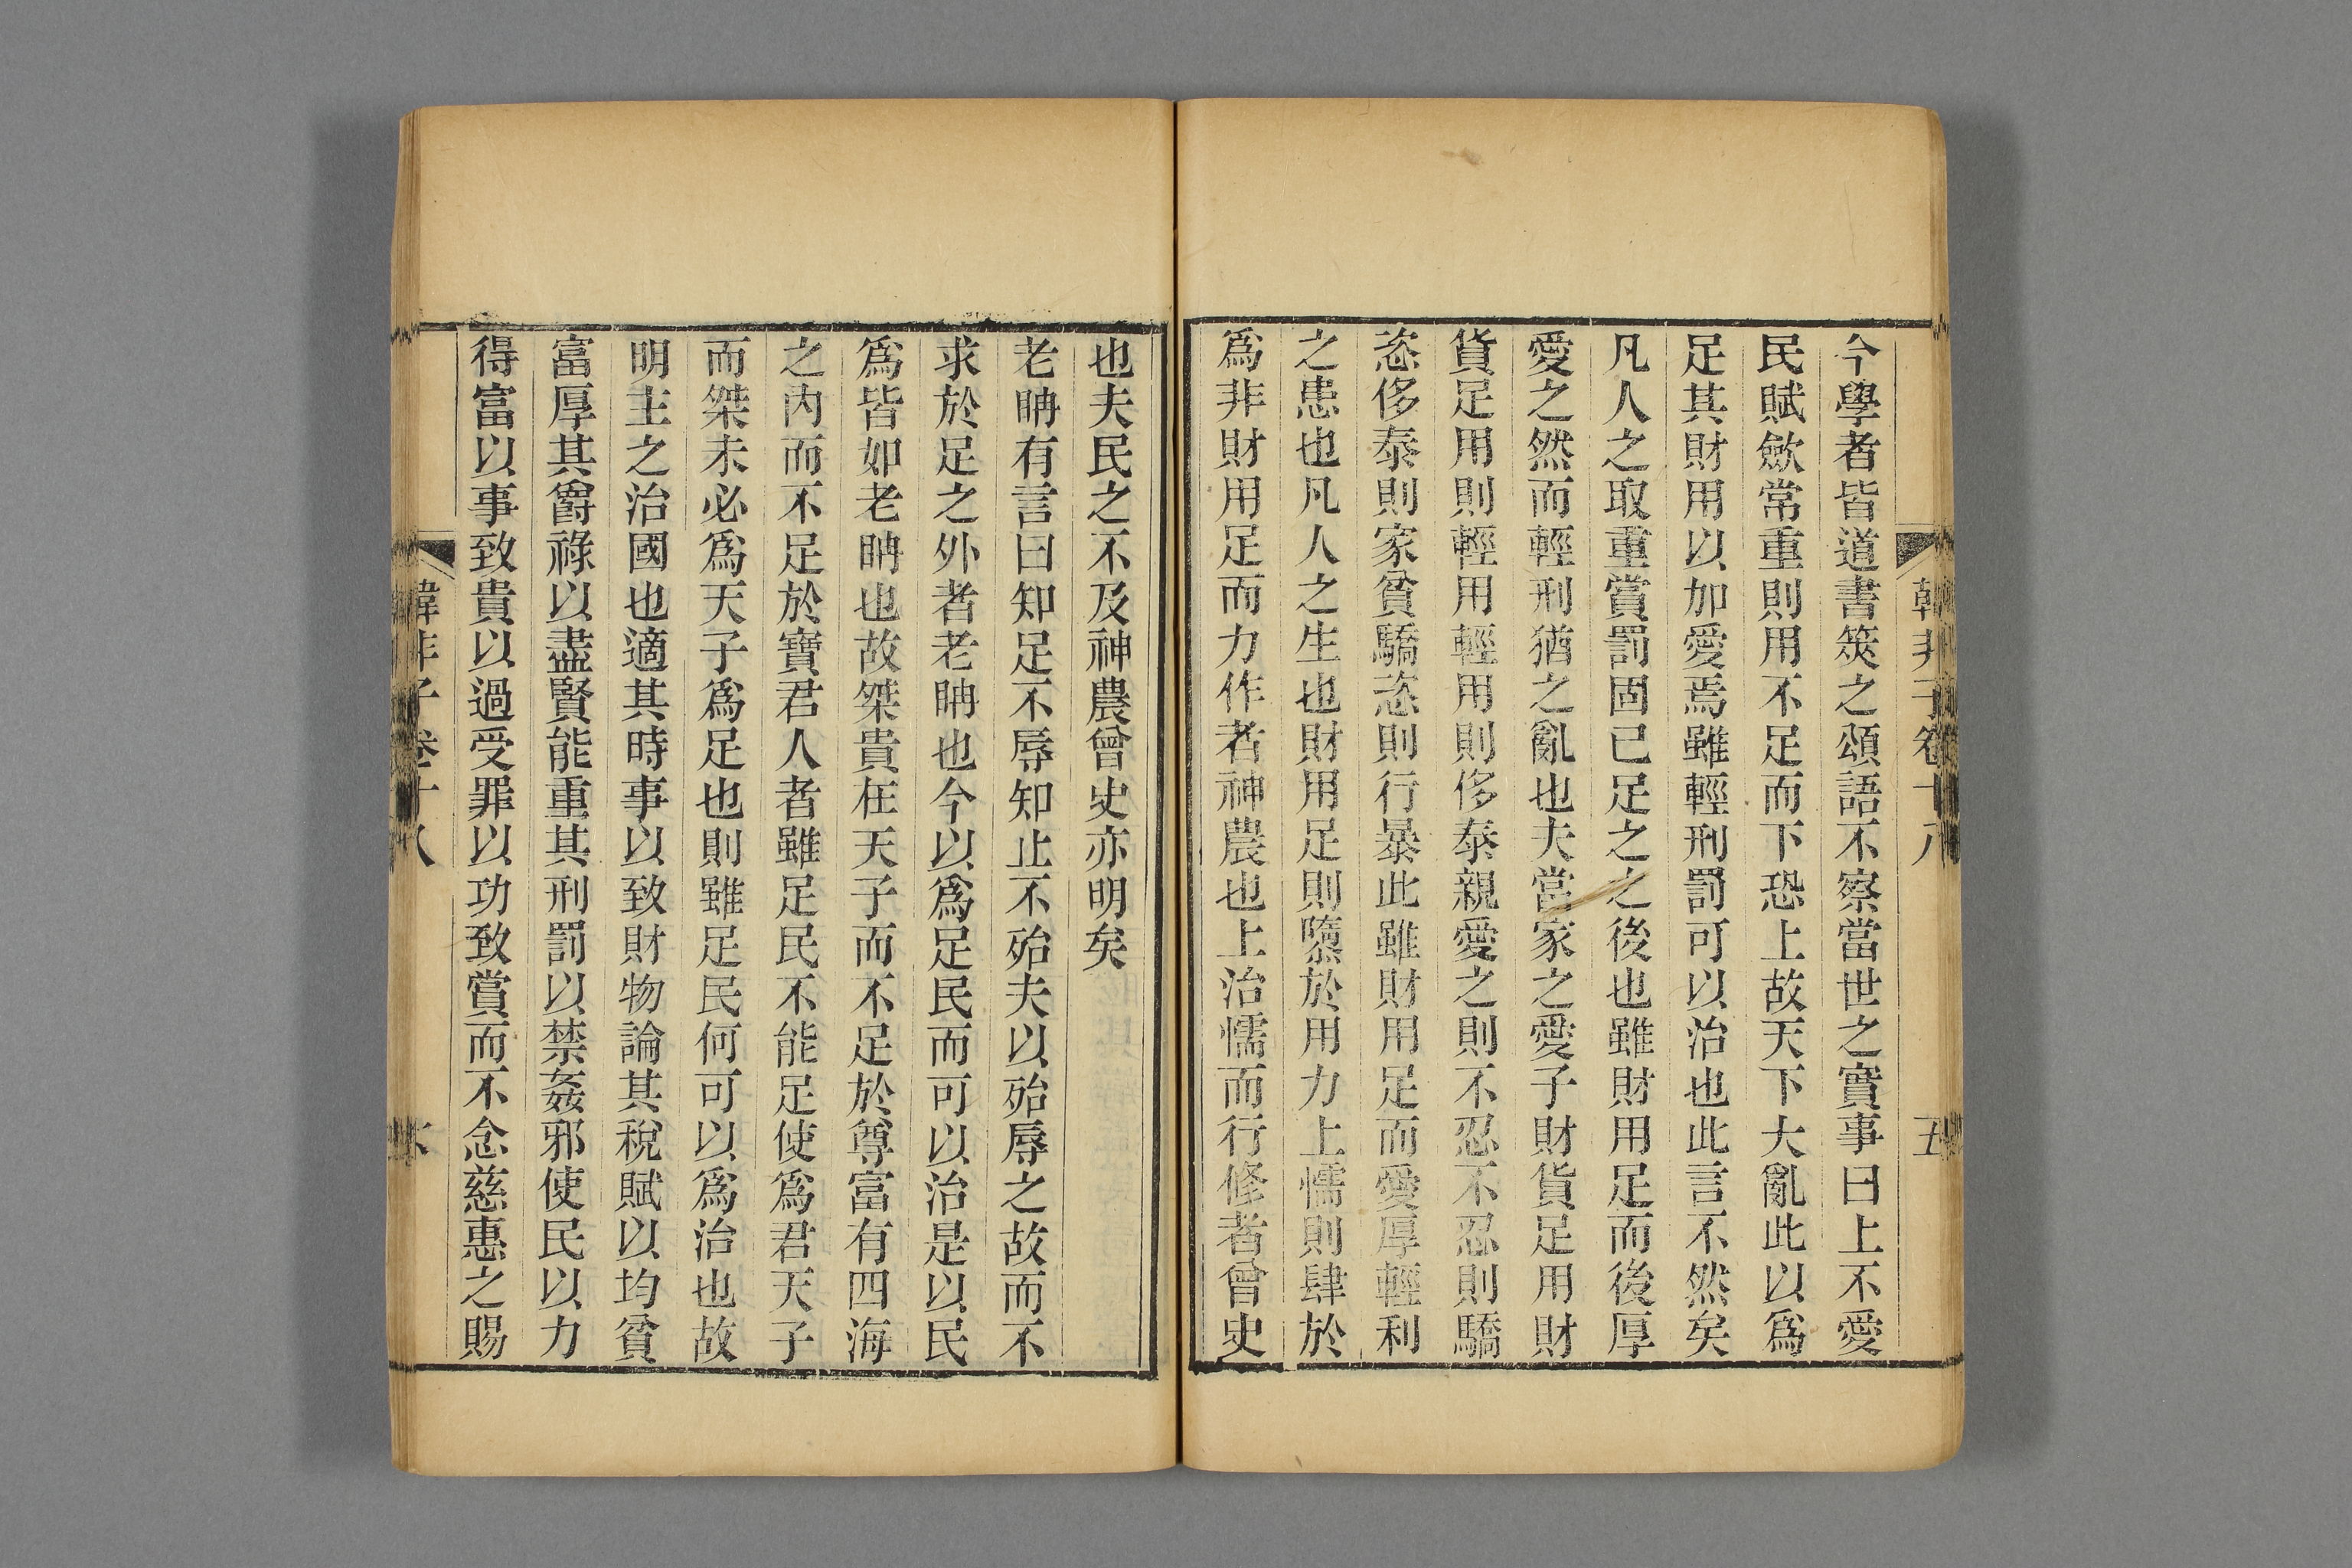 韓非子卷十八
五
今學者皆道書筴之頌語不察當世之實事曰上不愛
民賦斂常重則用不足而下恐上故天下大亂此以爲
足其財用以加愛焉雖輕刑罰可以治也此言不然矣
凡人之取重賞罰固已足之之後也雖財用足而後厚
愛之然而輕刑猶之亂也夫當家之愛子財貨足用財
貨足用則輕用輕用則侈泰親愛之則不忍不忍則驕
恣侈泰則家貧驕恣則行暴此雖財用足而愛厚輕利
之患也凡人之生也財用足則隳於用力上懦則肆於
爲非財用足而力作者神農也上治懦而行修者曾史
也夫民之不及神農曾史亦明矣
老聃有言曰知足不辱知止不殆夫以殆辱之故而不
求於足之外者老聃也今以爲足民而可以治是以民
爲皆如老聃也故桀貴在天子而不足於尊富有四海
之內而不足於寶君人者雖足民不能足使爲君天子
而桀未必爲天子爲足也則雖足民何可以爲治也故
明主之治國也適其時事以致財物論其稅賦以均貧
富厚其爵祿以盡賢能重其刑罰以禁姦邪使民以力
得富以事致貴以過受罪以功致賞而不念慈惠之賜
韓非子卷十八